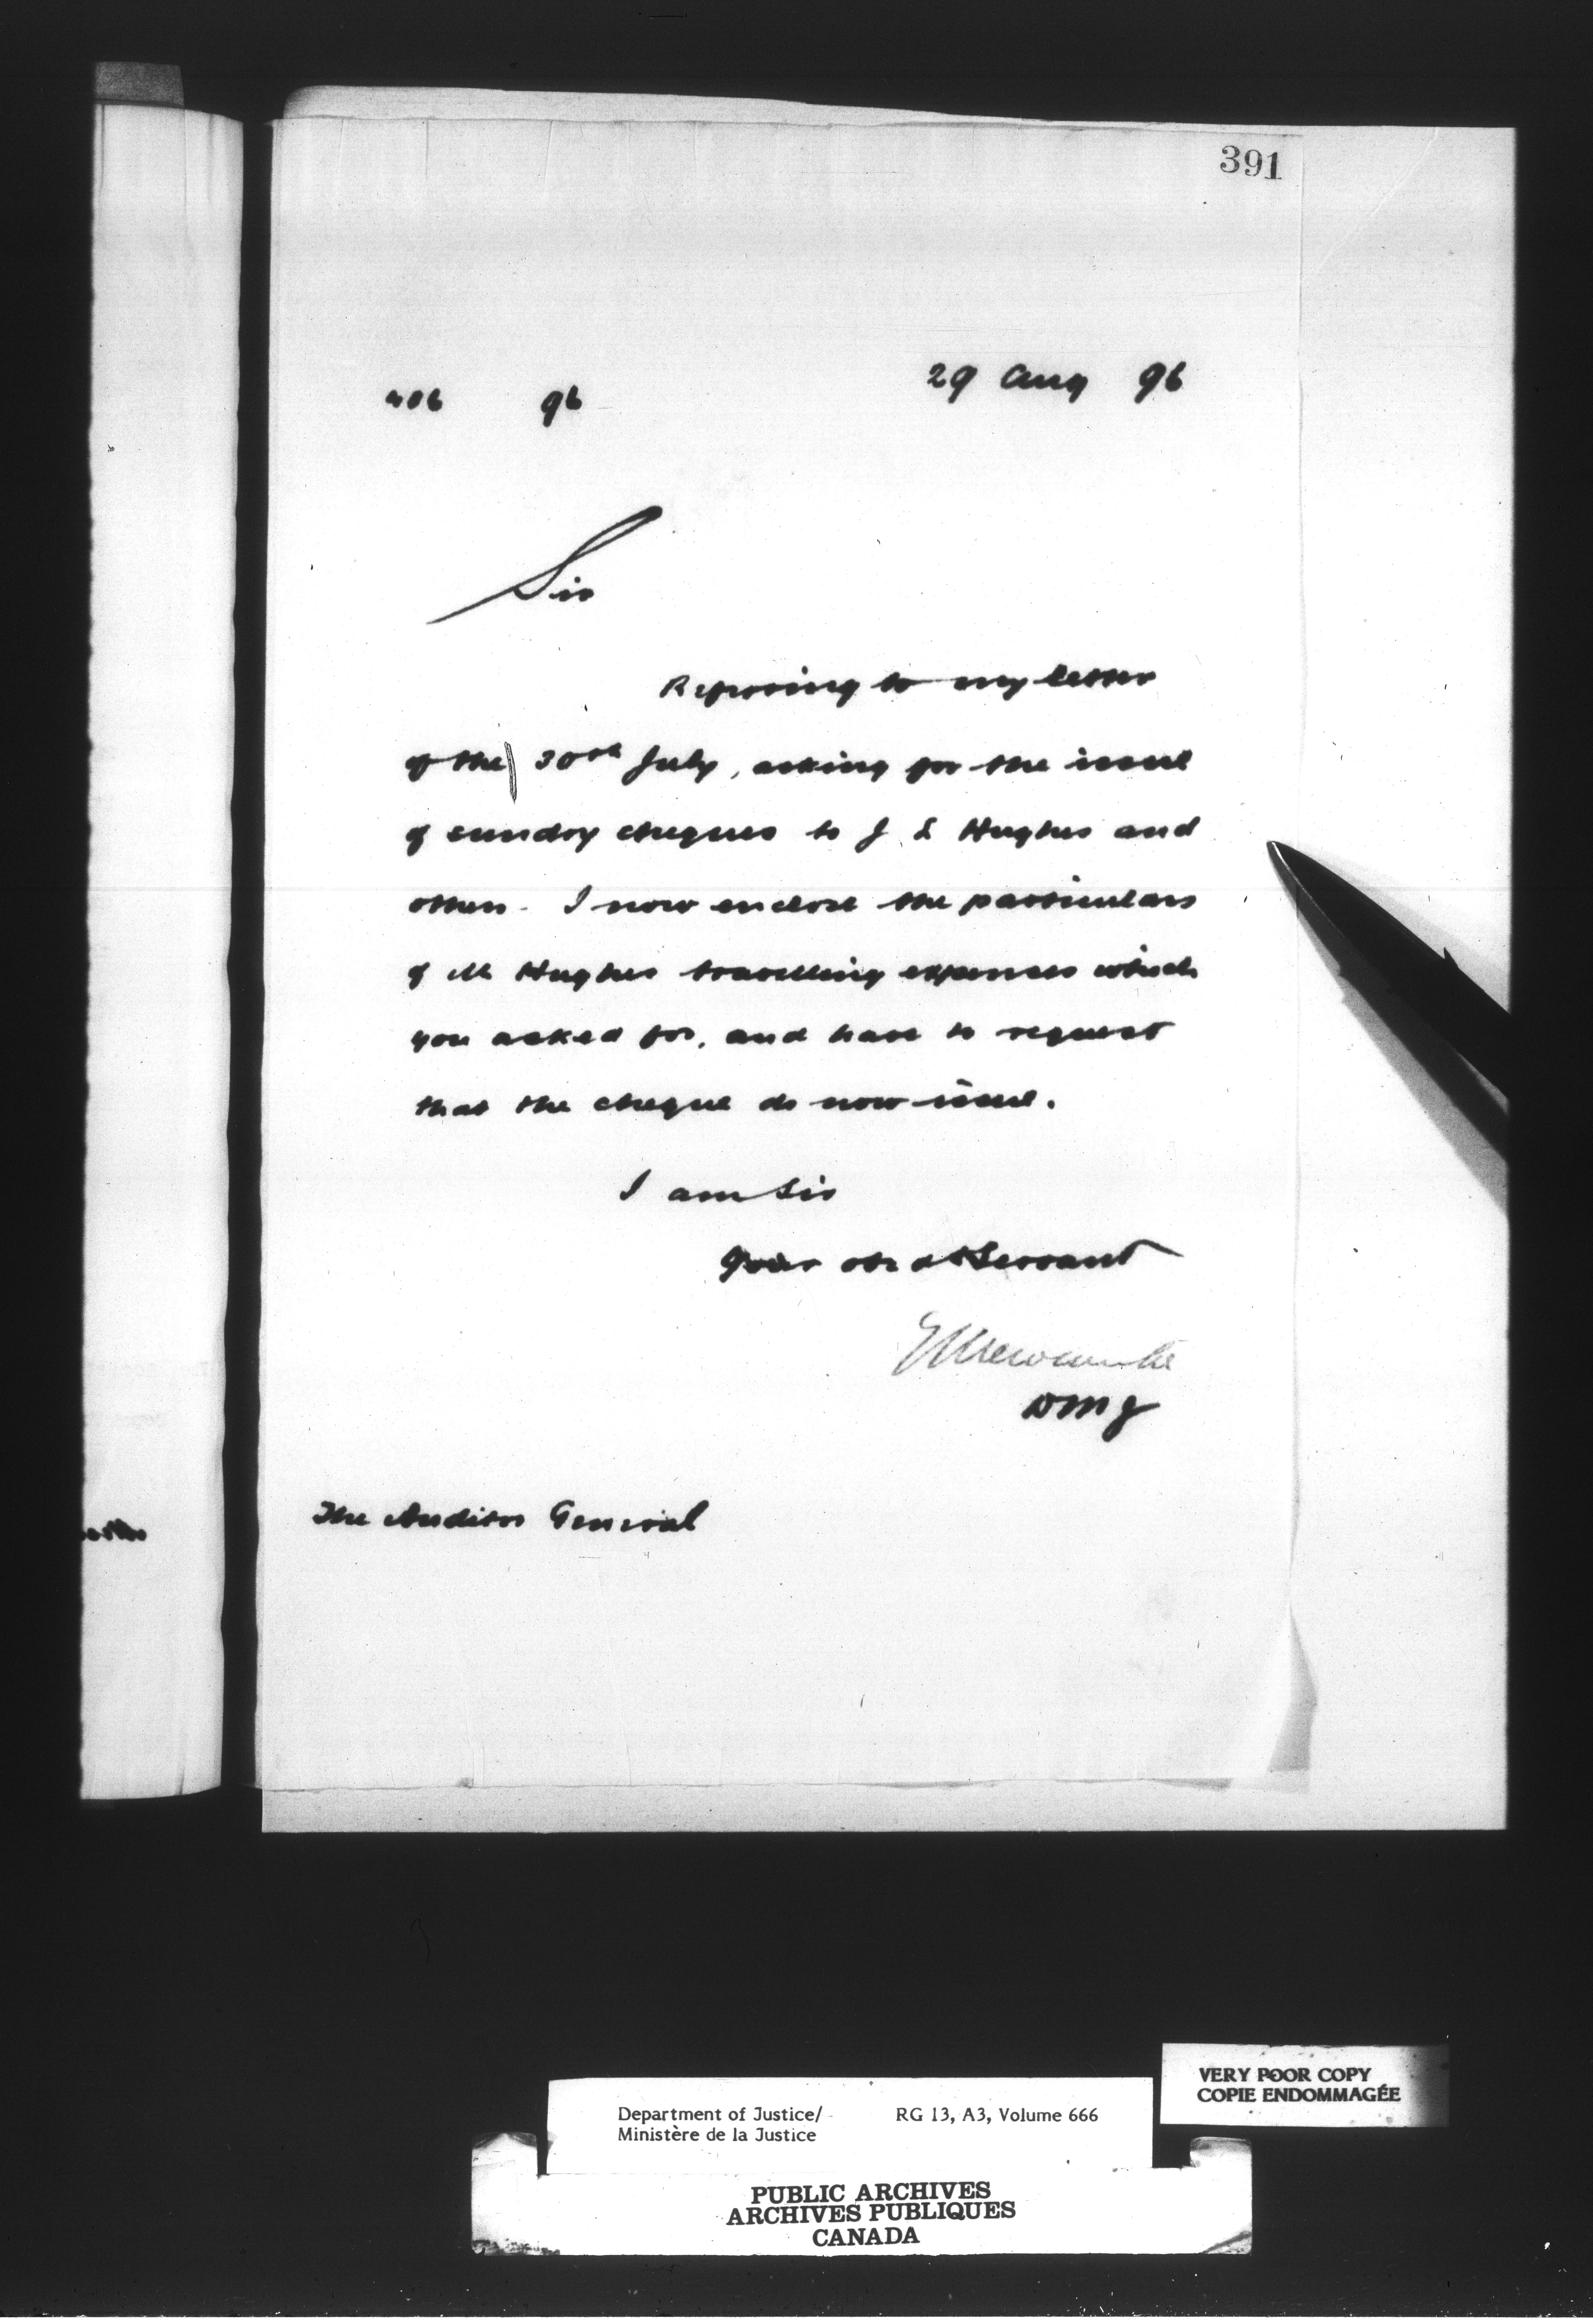 391
29 Aug 96
406 96
Sir
Referring to my letter
of the 30th July, asking for the issue
of sundry cheques to J L Hughes and
others. I now enclose the particulars
of Mr Hughes travelling expenses which
you asked for, and have to request
that the cheque do now issue.
I am Sir
Your obedt Servant
E L Newcombe
DMJ
The Auditor General
VERY POOR COPY
COPIE ENDOMMAGÉE
Department of Justice/ RG 13, A3, Volume 666
Ministère de la Justice
PUBLIC ARCHIVES
ARCHIVES PUBLIQUES
CANADA